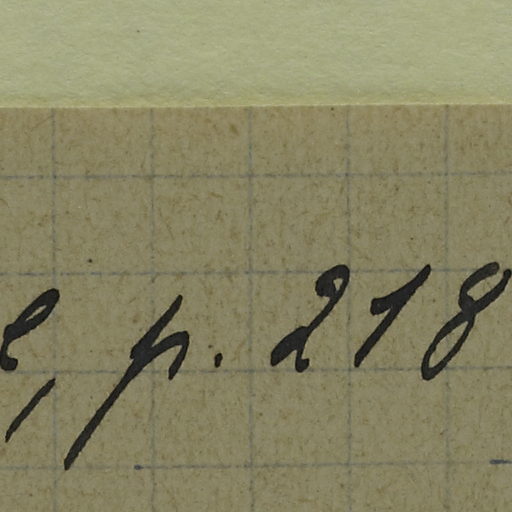 e, p. 218